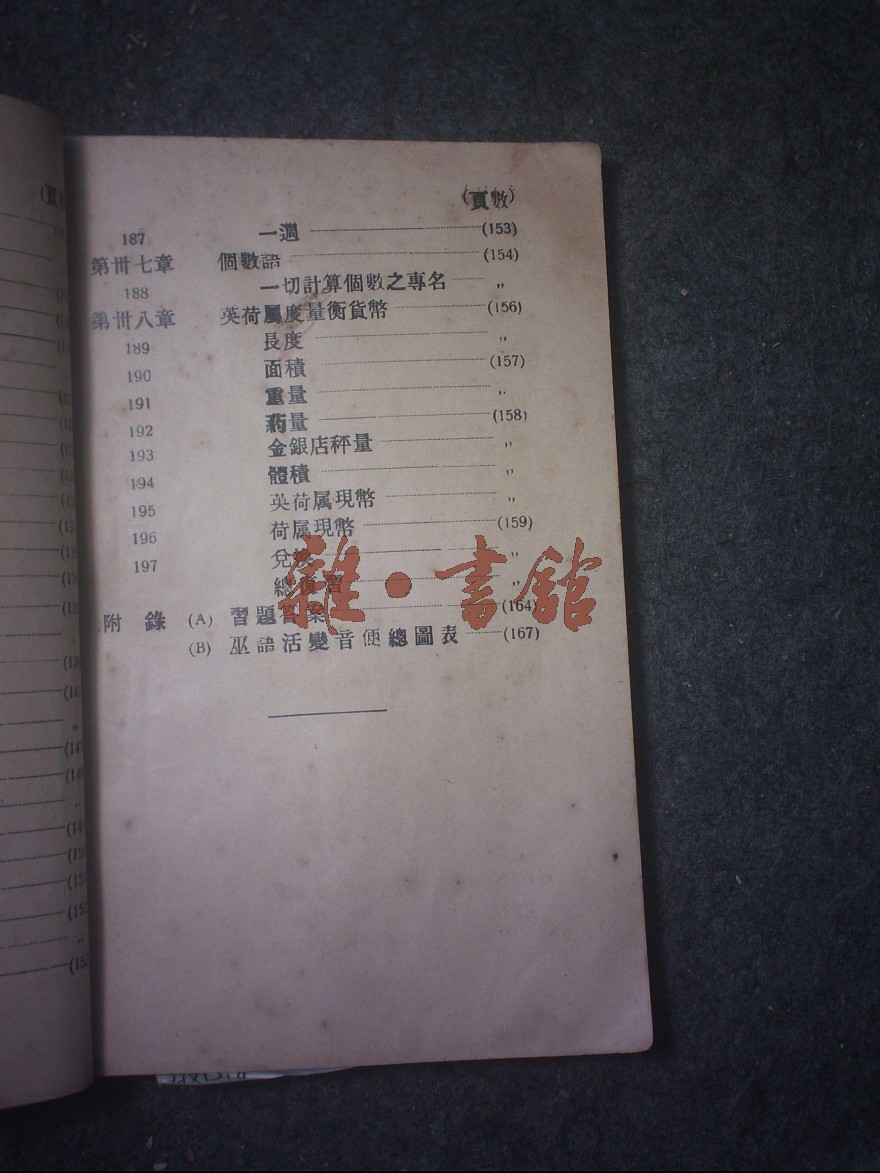 (頁數)
187 一週 (153)
第卅七章 個數語 (154)
188 一切計算個數之專名 ,,
第卅八章 英荷属度量衡貨幣 (156)
189 長度 ,,
190 面積 (157)
191 重量 ,,
192 葯量 (158)
193 金銀店秤量 ,,
194 體積 ,,
195 英荷属現幣 ,,
196 荷属現幣 (159)
197 兌換 ,,
總復習 ,,
附錄 (A) 習題答案 (164)
(B) 巫語活變音便總圖表 (167)
雜·書館